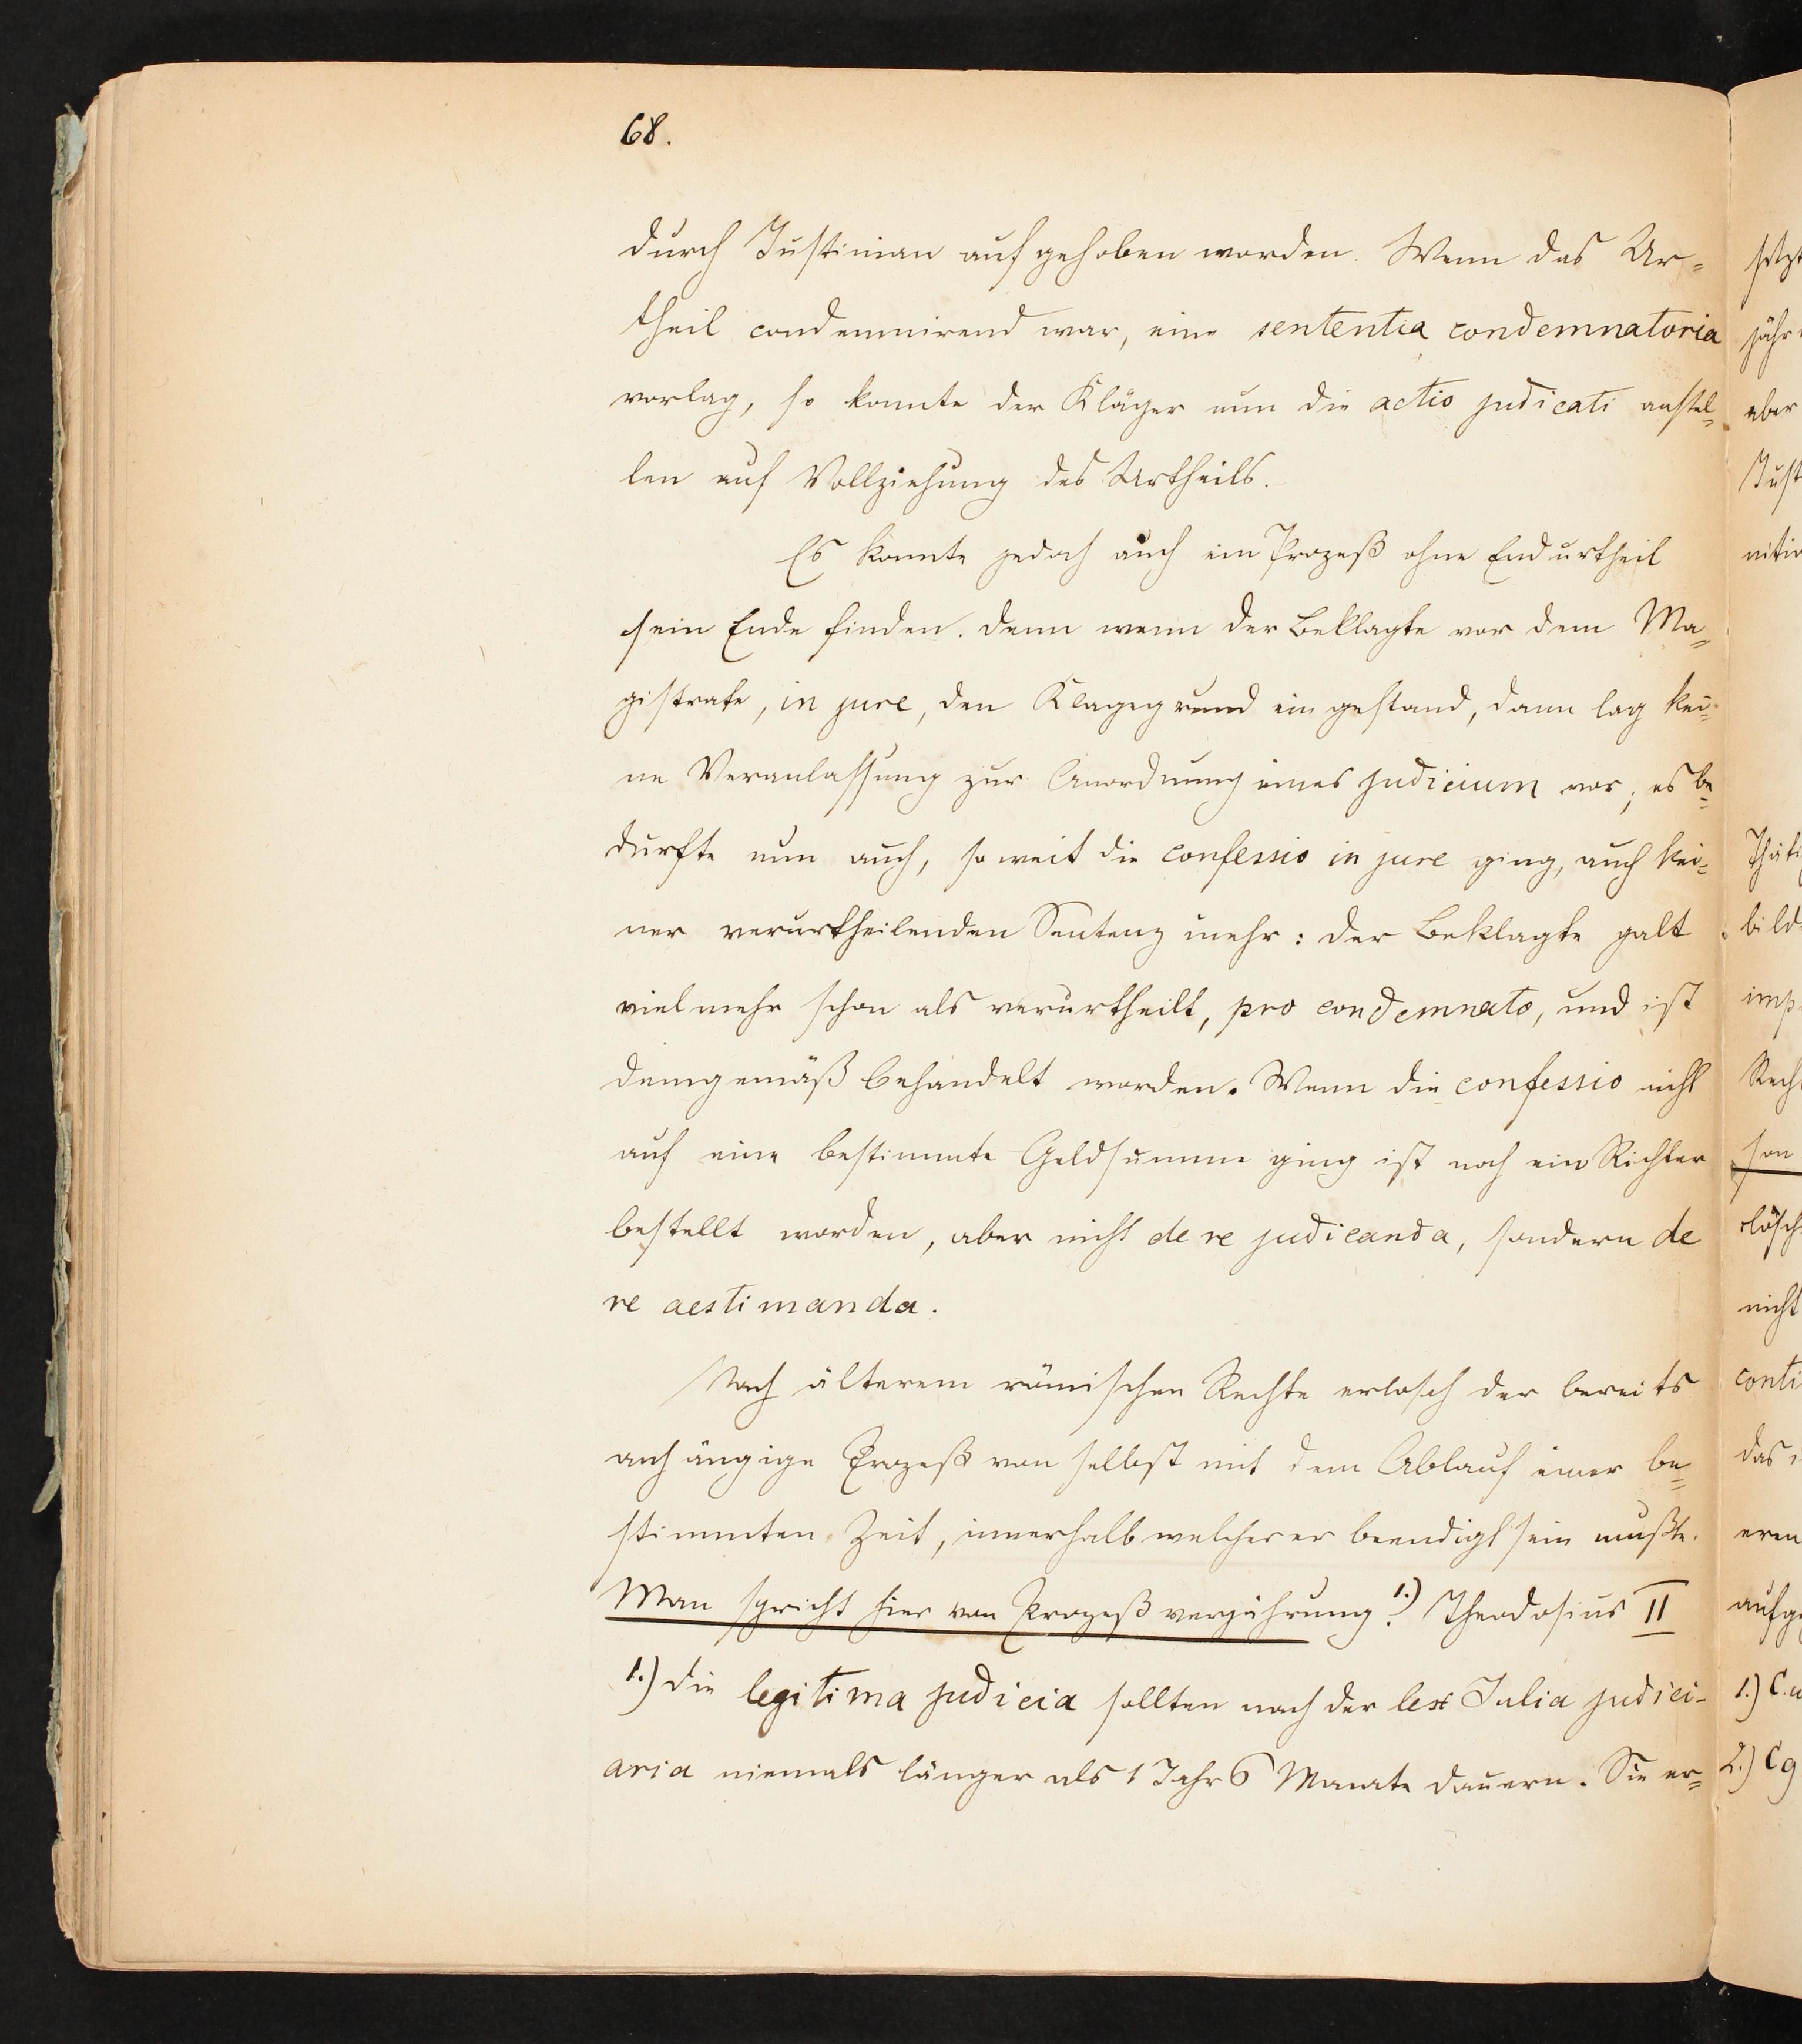 68.
durch Justinian aufgehoben worden. Wenn das Ur=
theil condemnirend war, eine sententia condemnatoria
vorlag, so konnte der Kläger nun die actio judicati anstel=
len auf Vollziehung des Urtheils.
Es konnte jedoch auch ein Prozeß ohne Endurtheil
sein Ende finden. Denn wenn der Beklagte vor dem Ma=
gistrate, in jure, den Klagegrund eingestand, dann lag kei=
ne Veranlassung zur Anordnung eines judicium vor; es be=
durfte nun auch, so weit die confessio in jure ging, auch kei=
ner verurtheilenden Sentenz mehr: der Beklagte galt
vielmehr schon als verurtheilt, pro condemnato, und ist
demgemäß behandelt worden. Wenn die confessio nicht
auf eine bestimmte Geldsumme ging ist noch ein Richter
bestellt worden, aber nicht de re judicanda, sondern de
re aestimanda.
Nach älterem römischen Rechte erlosch der bereits
anhängige Prozeß von selbst mit dem Ablauf einer be=
stimmten Zeit, innerhalb welcher er beendigt sein mußte.
Man spricht hier von Prozeßverjährung 1.). Theodosius II
1.) Die legitima judicia sollten nach der lex Julia judici-
aria niemals länger als 1 Jahr 6 Monate dauern. Sie er=